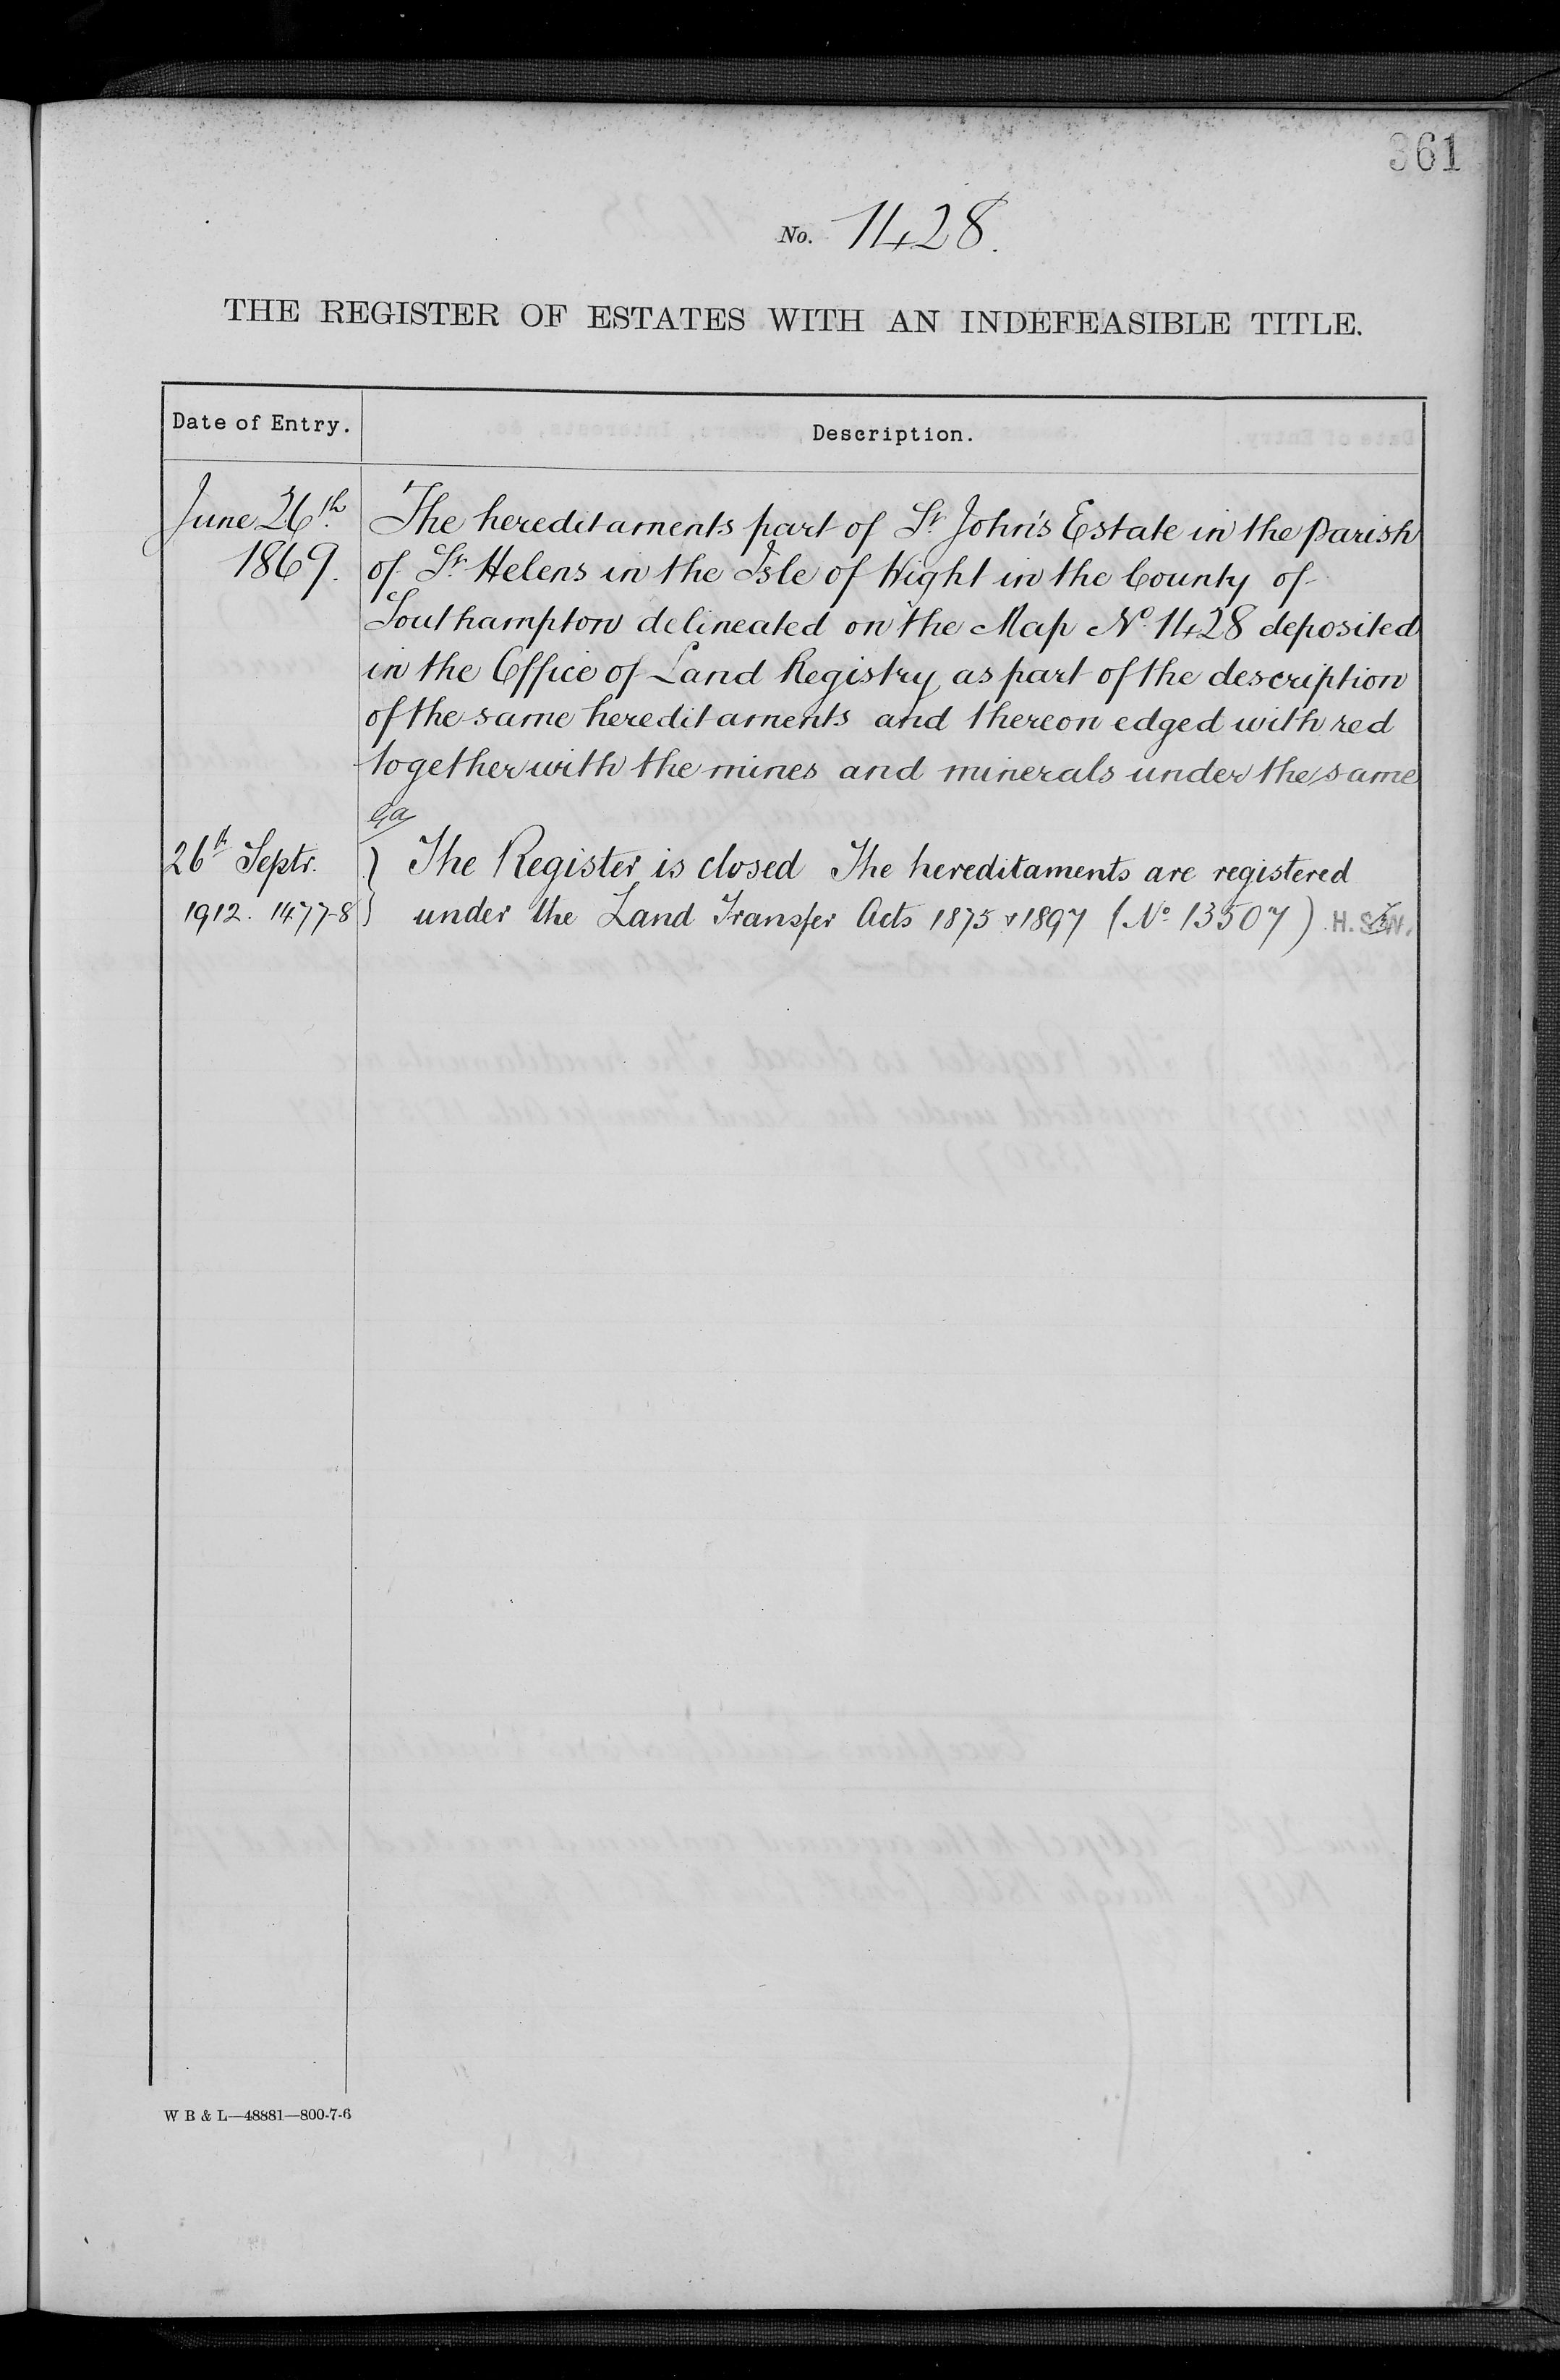 361
No. 1428.
THE REGISTER OF ESTATES WITH AN INDEFEASIBLE TITLE.
Date of Entry. Description.
June 26th The hereditaments part of St. John's Estate in the Parish
1869. of St. Helens in the Isle of Wight in the County of
Southampton delineated on the Map No. 1428 deposited
in the Office of Land Registry as part of the description
of the same hereditaments and thereon edged with red
together with the mines and minerals under the same
26th Septr. } The Register is closed The hereditaments are registered
1912. 1477-8 } under the Land Transfer Acts 1875 & 1897 (No. 13507) H.S.W.
W B & L—48881—800-7-6